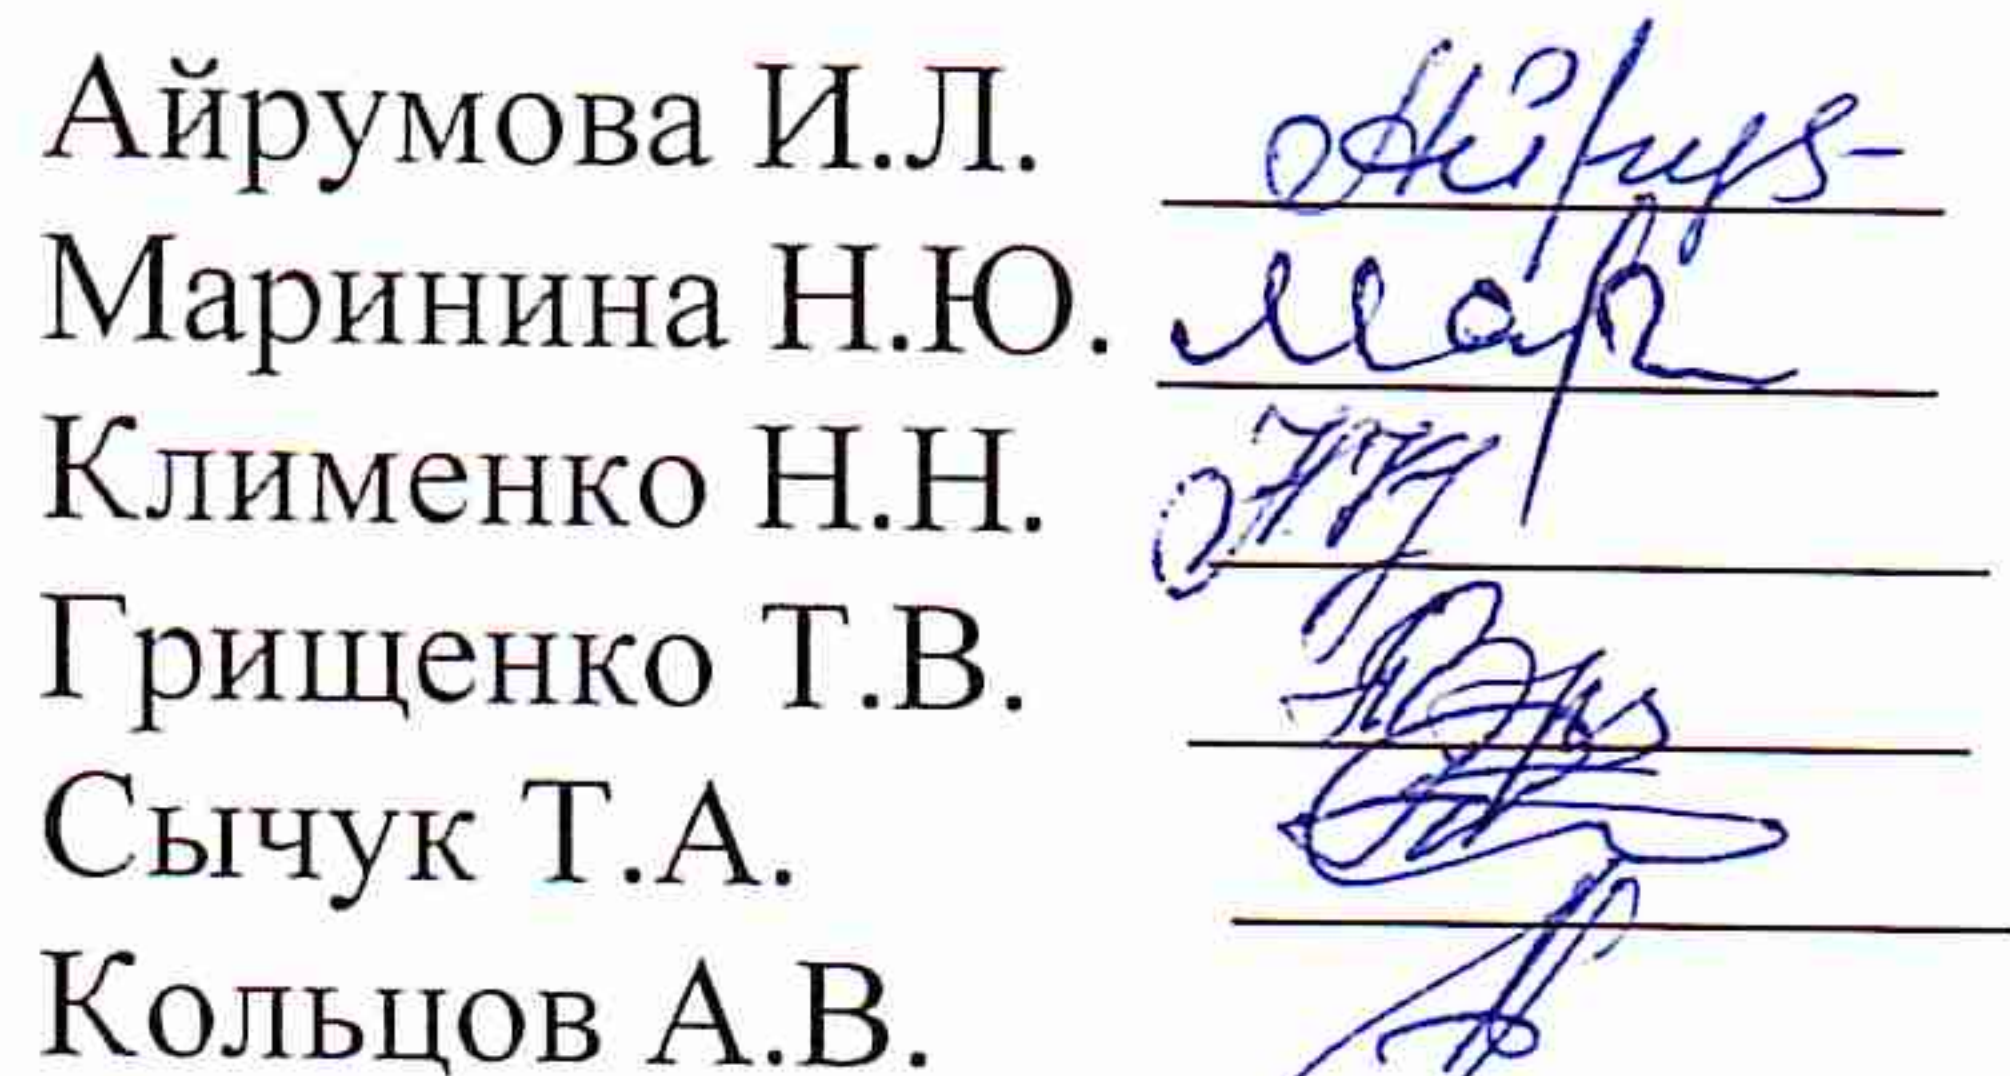 Айрумова И.Л.
Маринина Н.Ю.
Клименко Н.Н.
Грищенко Т.В.
Сычук Т.А.
Кольцов А.В.